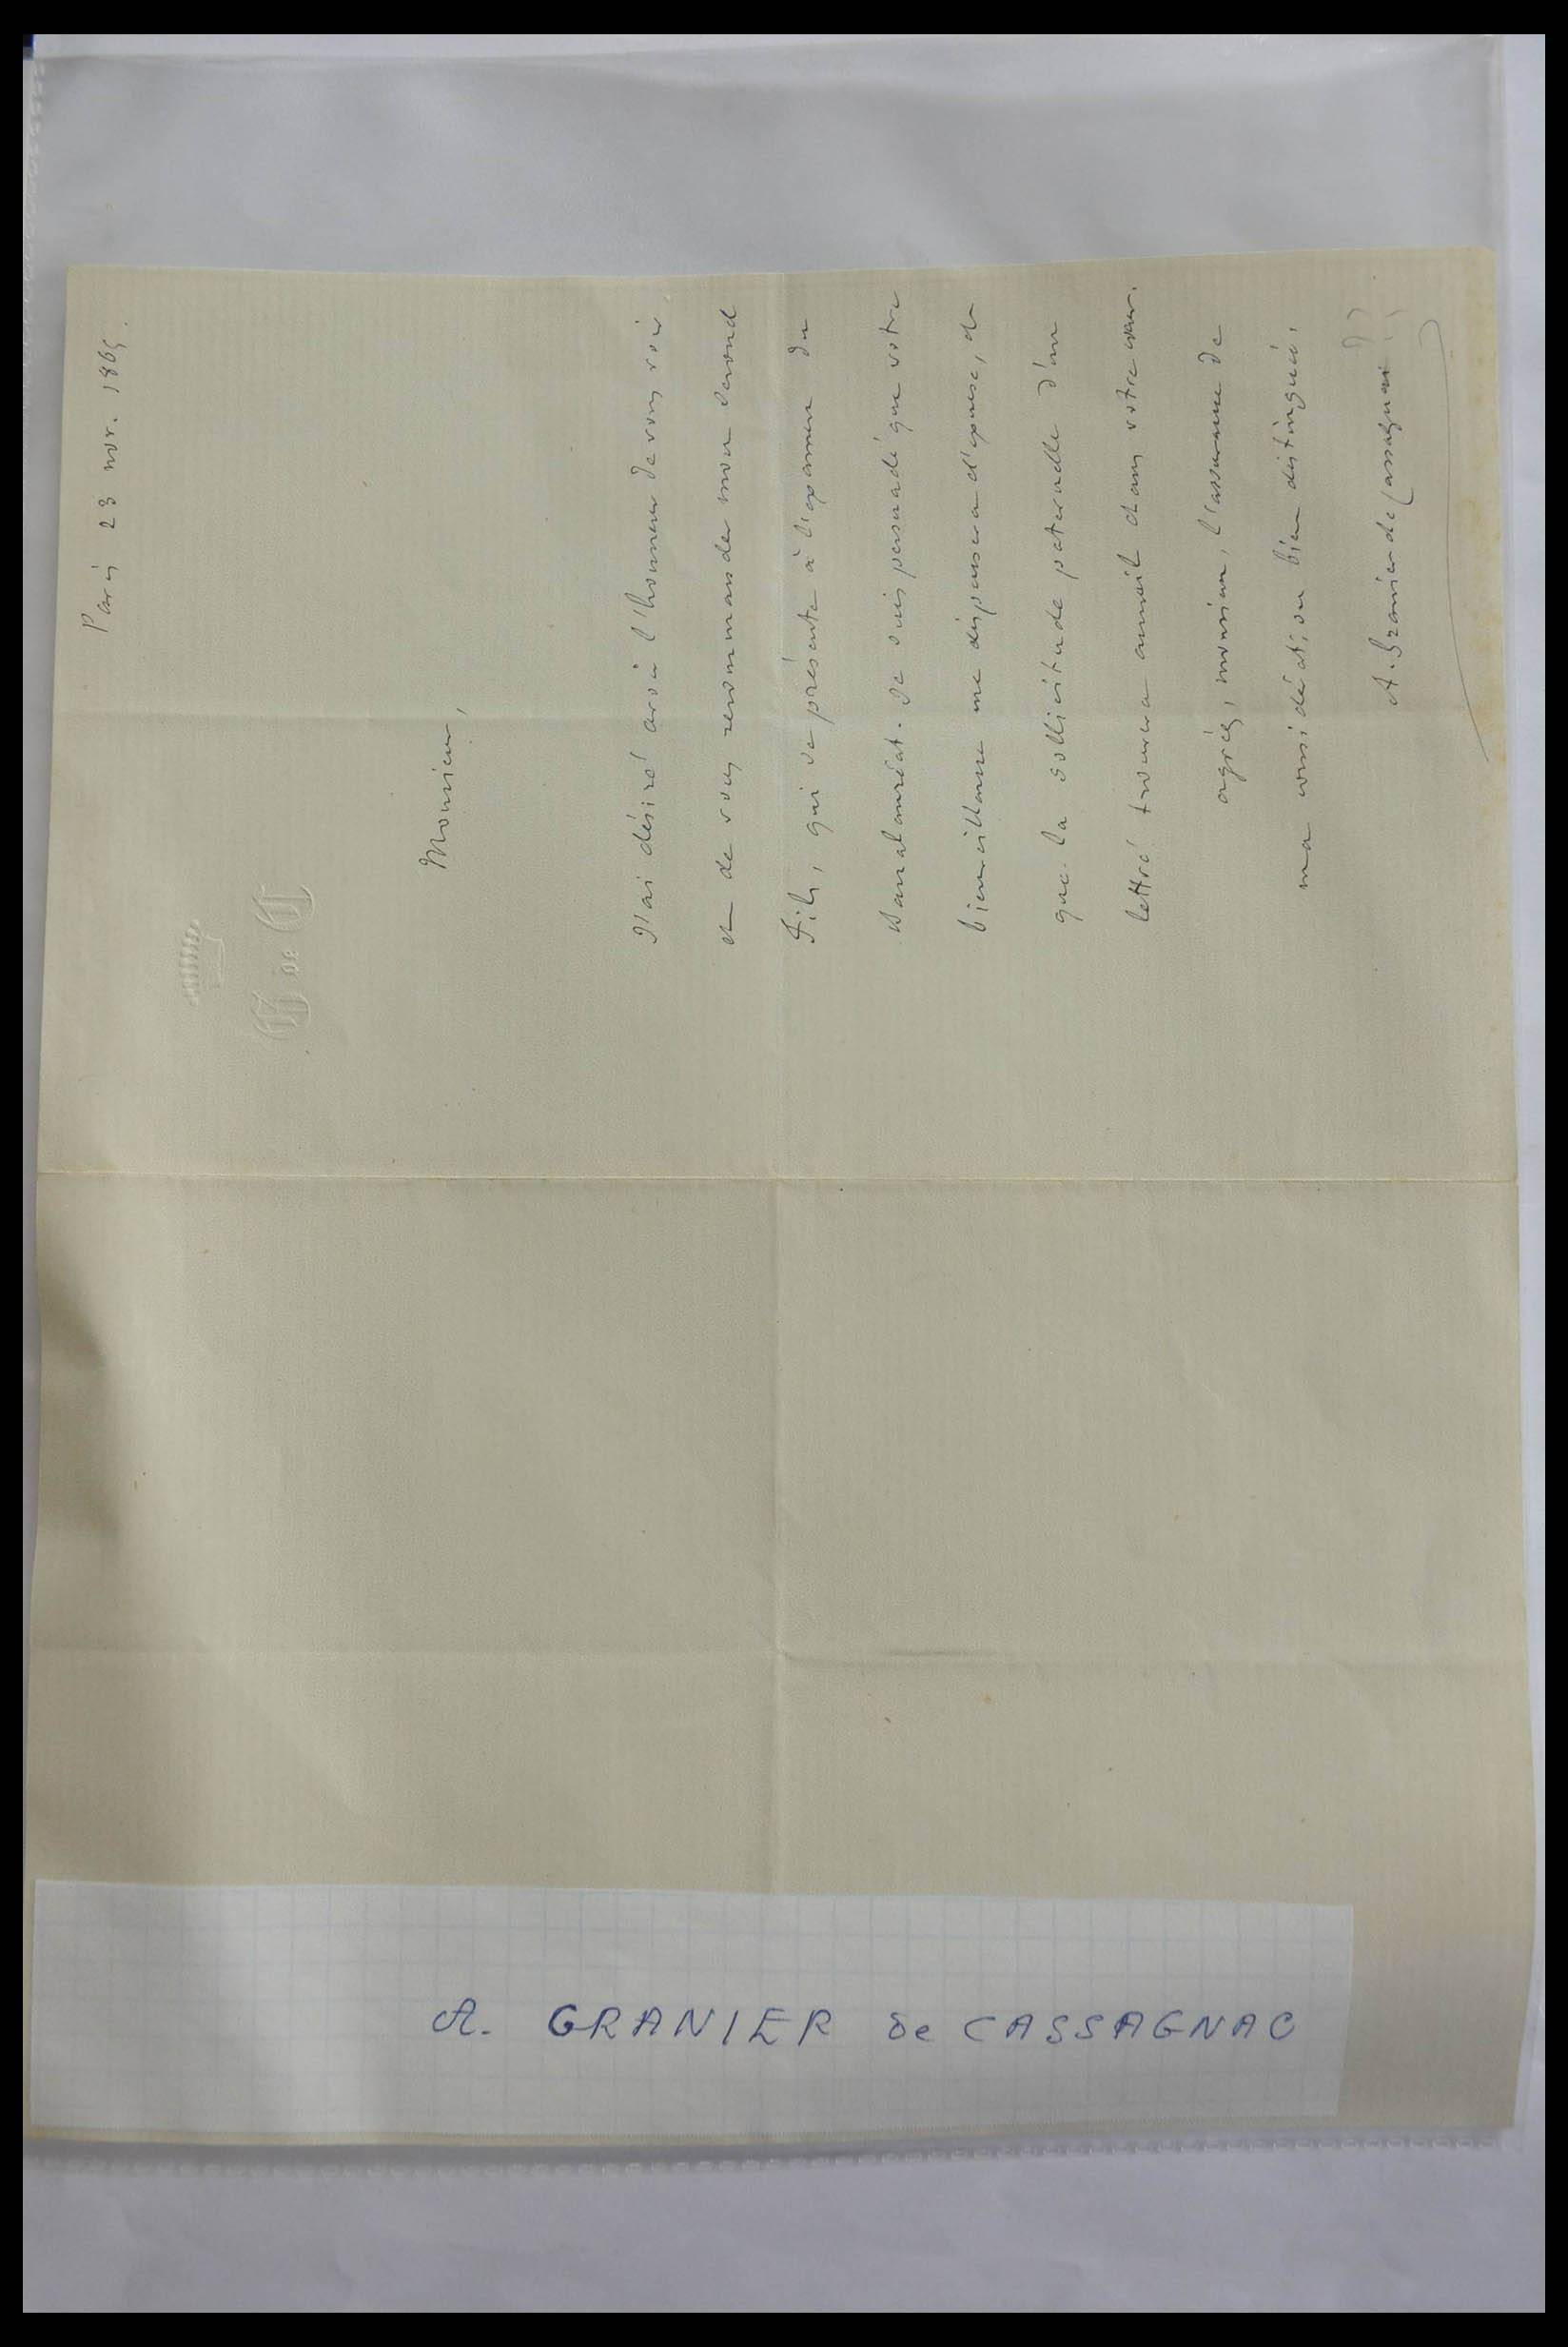 Paris 23 nov. 1865.
G de C
Monsieur,
J'ai désiré avoir l'honneur de vous voir
et de vous recommander mon second
fils, qui se présente à l'examen du
Baccalauréat. Je suis persuadé que votre
bienveillance me dispensera d'excuse, et
que la sollicitude paternelle d'un
lettré trouvera accueil dans votre cœur.
agréez, monsieur, l'assurance de
ma considération bien distinguée.
A. Granier de Cassagnac
A. GRANIER de CASSAGNAC